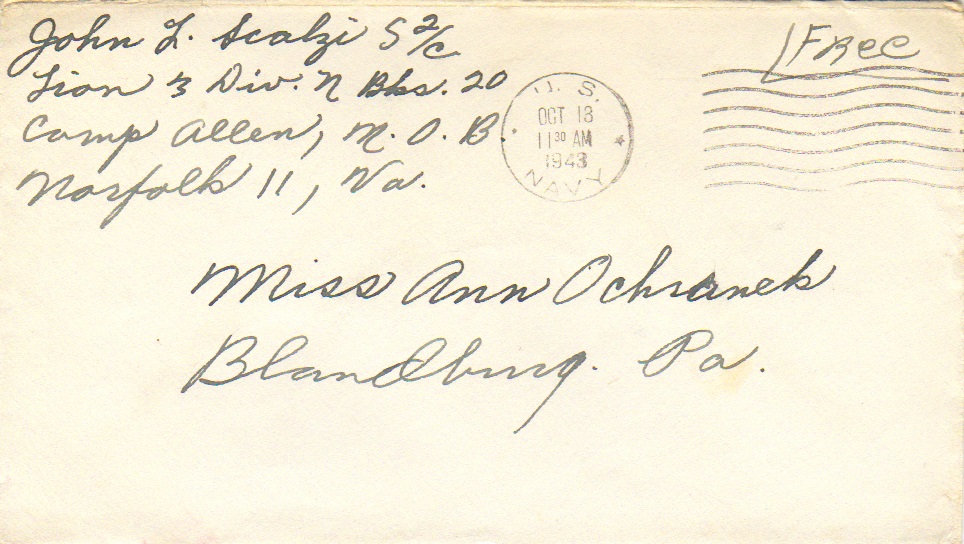 John L. Scalzi S 2/c
Lion 3 Div. N Bks. 20
Camp Allen, N. O. B.
Norfolk 11, Va.
Free
U. S.
OCT 13
11 30 AM
1943
NAVY
Miss Ann Ochranek
Blandburg. Pa.